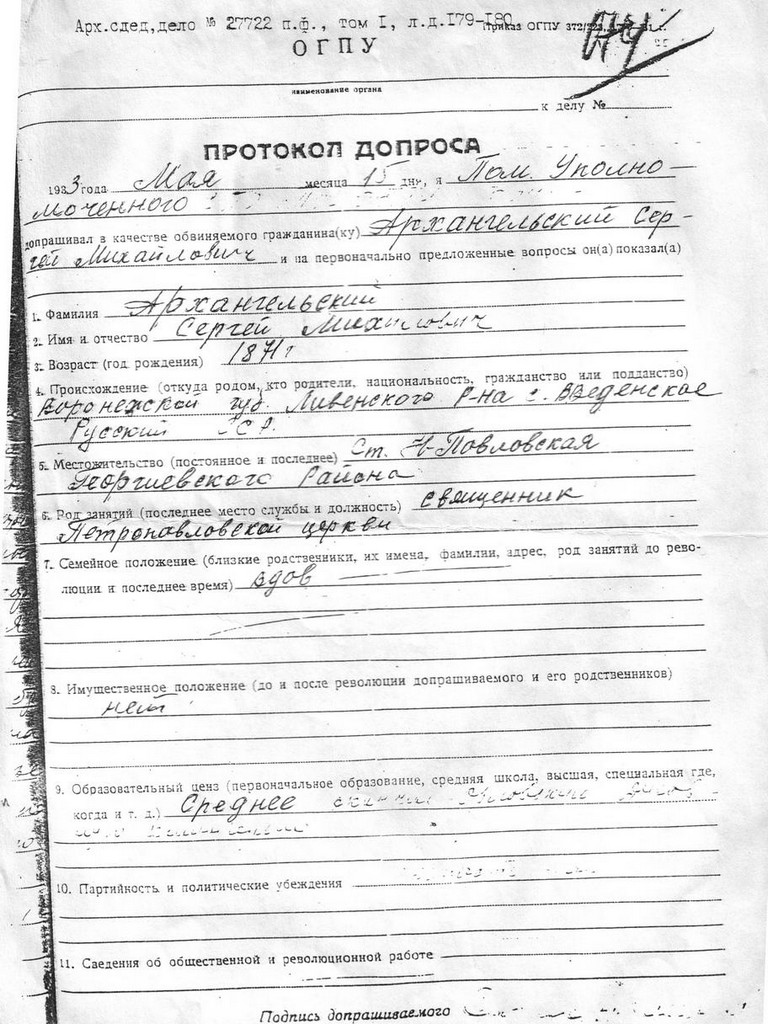 Арх.след,дело № 27722 п.ф., том I, л.д.179-180
Приказ ОГПУ 372/
ОГПУ
наименование органа
к делу №
ПРОТОКОЛ ДОПРОСА
1933 года Мая месяца 15 дня, я Пом. Уполно-
моченного
допрашивал в качестве обвиняемого гражданина(ку) Архангельский Сер-
гей Михайлович и на первоначально предложенные вопросы он(а) показал(а)
1. Фамилия Архангельский
2. Имя и отчество Сергей Михайлович
3. Возраст (год рождения) 1871 г
4. Происхождение (откуда родом, кто родители, национальность, гражданство или подданство)
Воронежской губ. Ливенского р-на с. Введенское
Русский
5. Местожительство (постоянное и последнее) Ст. Н-Повловская
Георгиевского Района
6. Род занятий (последнее место службы и должность) священник
Петропавловской церкви
7. Семейное положение (близкие родственники, их имена, фамилии, адрес, род занятий до рево-
люции и последнее время) вдов
8. Имущественное положение (до и после революции допрашиваемого и его родственников)
нет
9. Образовательный ценз (первоначальное образование, средняя школа, высшая, специальная где,
когда и т. д.) Среднее
10. Партийность и политические убеждения
11. Сведения об общественной и революционной работе
Подпись допрашиваемого